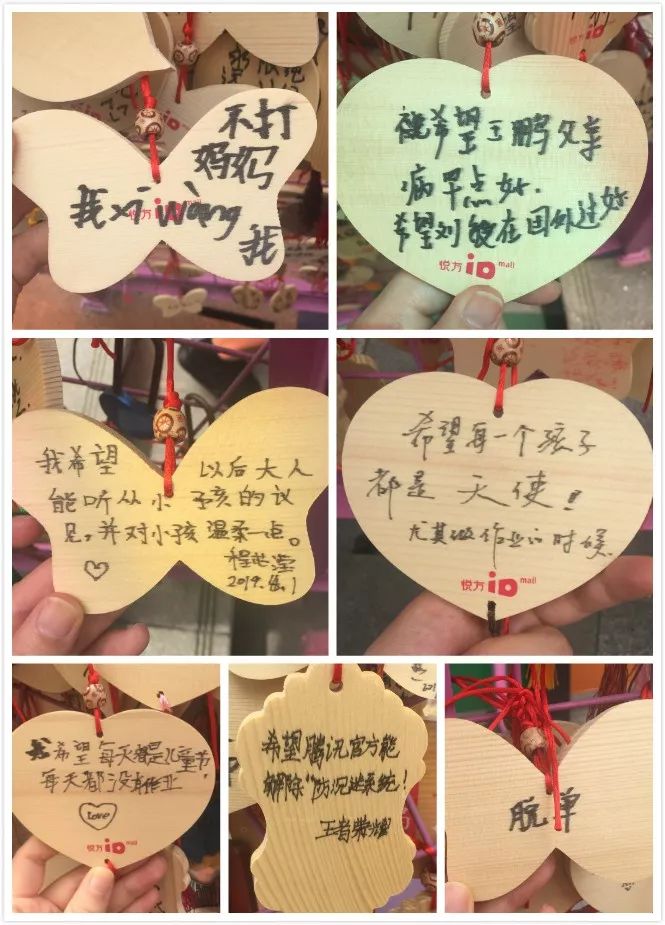 不打
妈妈
我xī wàng
我
我希望王鹏父亲
病早点好.
希望刘敏在国外过好
悦方iD mall
我希望 以后大人
能听从小孩的议
见,并对小孩温柔一点。
2019.6.1
希望每一个孩子
都是天使!
尤其做作业的时候
悦方iD mall
我希望每天都是儿童节,
每天都没有作业
Love
悦方iD mall
希望腾讯官方能
解除“防沉迷系统!
王者荣耀
脱单